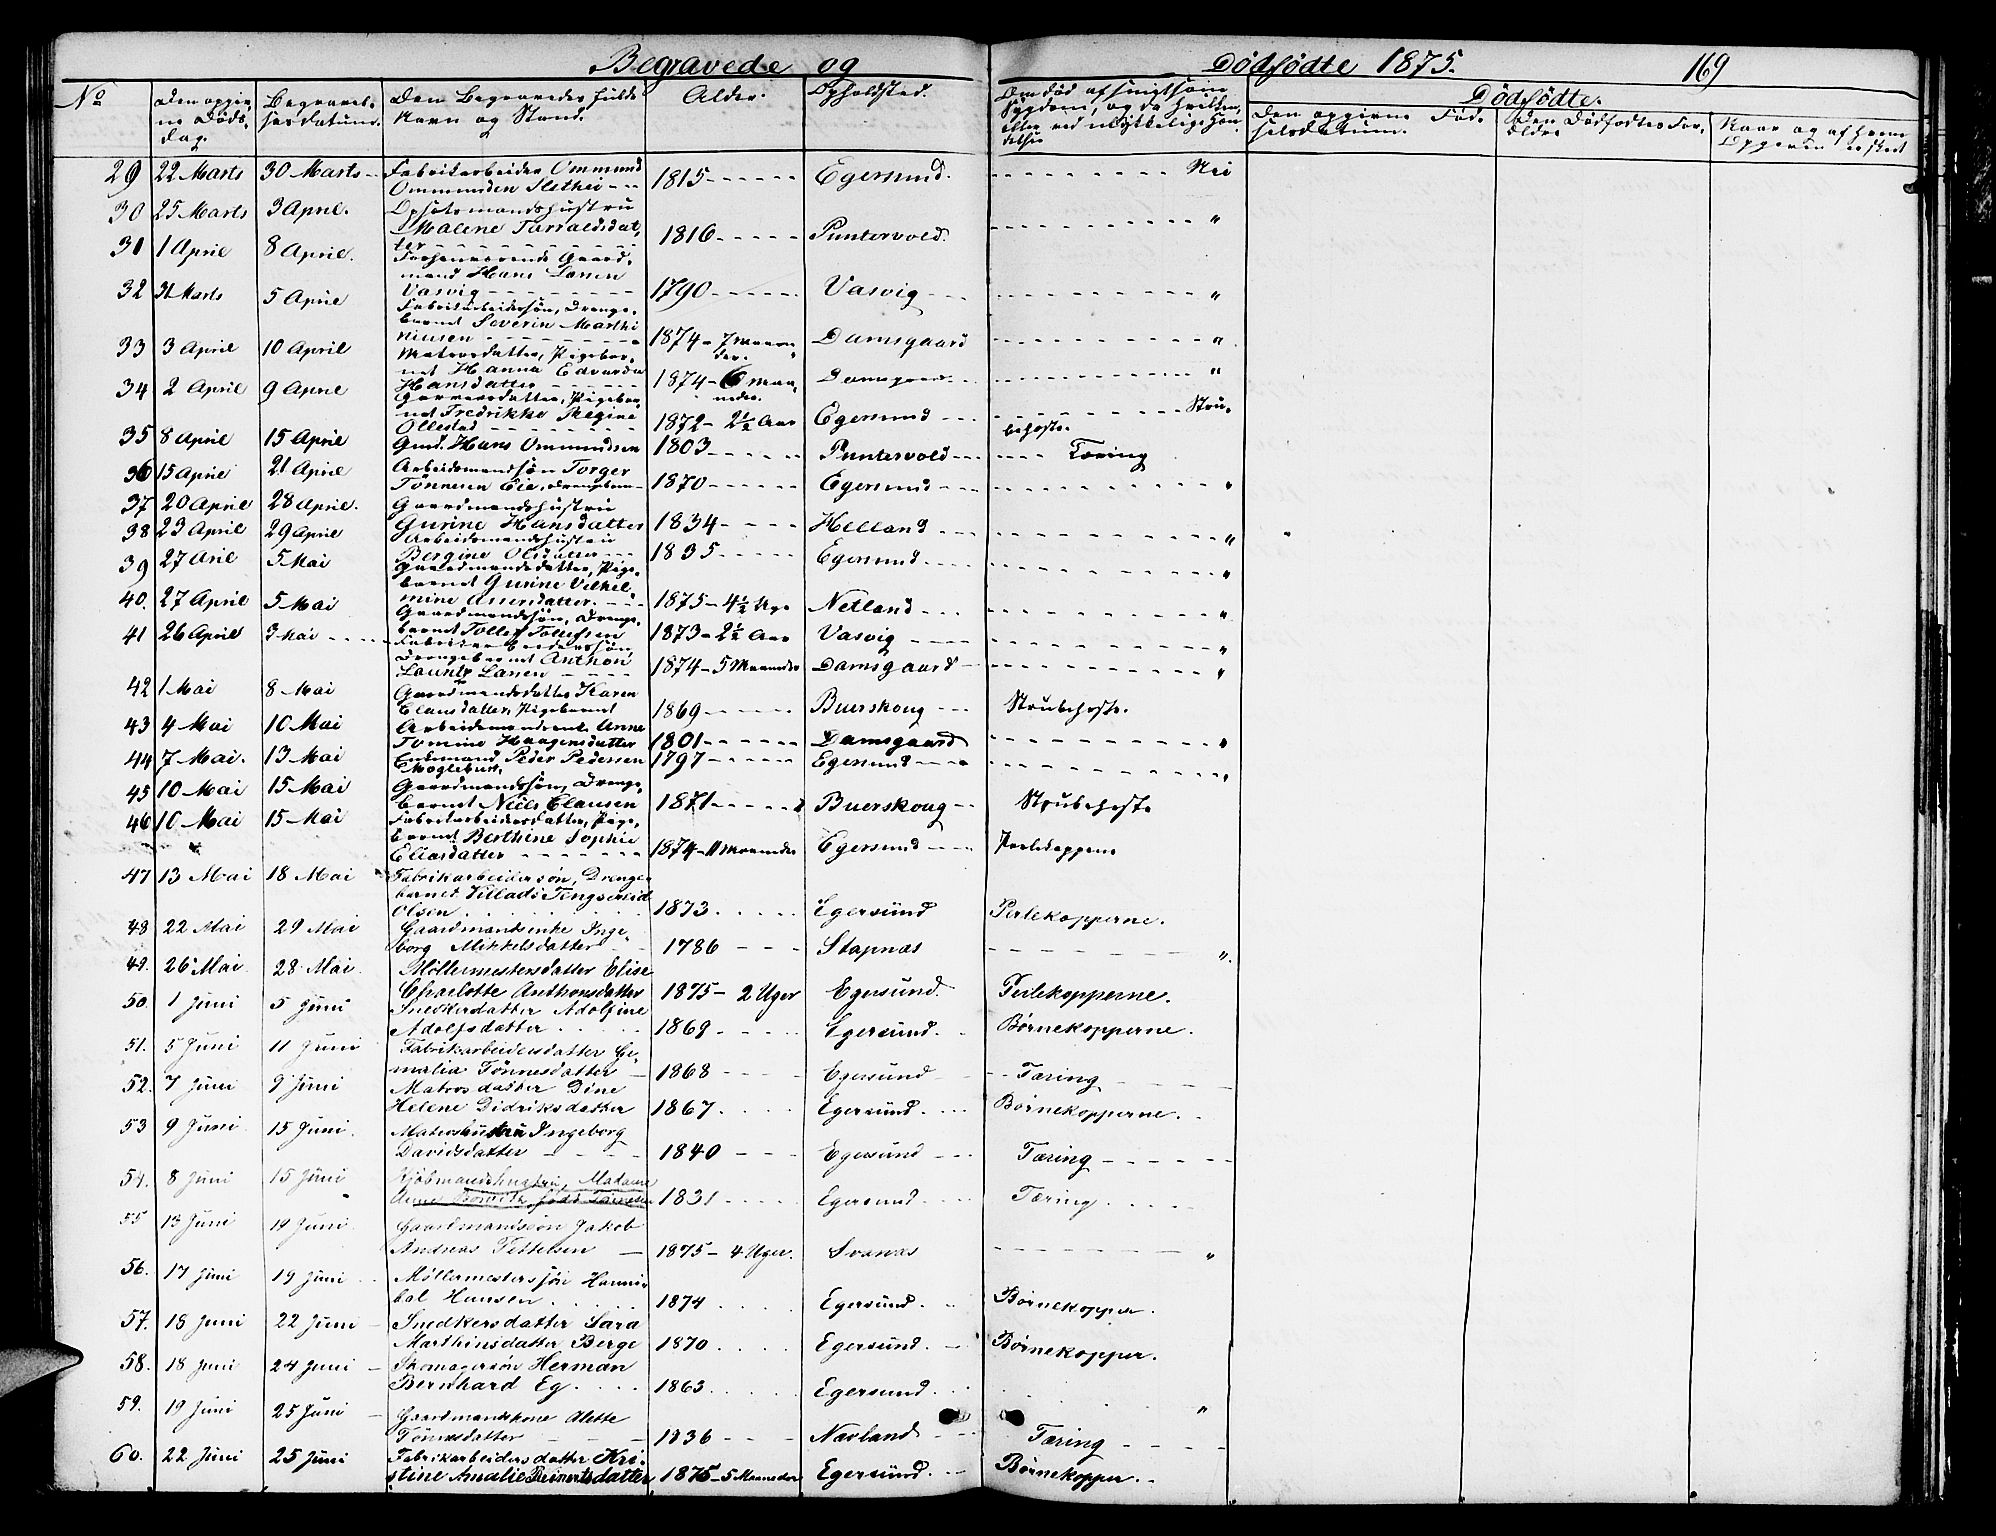 Begravede og Dødfødte 1875. 169
No | Den opgivne Døds-dag. | Begravelsesdatum. | Den Begravedes fulde Navn og Stand. | Alder. | Opholdsted. | Om død af smitsom Sygdom, og da hvilken, eller ved ulykkelig Hændelse | Dødfødte.
Den opgivne Fødselsdatum. | Den Dødfødtes Forældre | Naar og af hvem Opgaven er skeet
29 | 22 Marts | 30 Marts | Fabrikarbeider Ommund
Ommundsen Slethei | 1815 | Egersund. | Nei
30 | 25 Marts | 3 April. | Opsitsmandshustru
Malene Tarraldsdatter | 1816 | Puntervold. | "
31 | 1 April | 8 April. | Forhenværende Gaardmand Hans Larsen
Vasvig | 1790 | Vasvig | "
32 | 31 Marts | 5 April | Fabrikarbeidersøn, Drengebarnet Severin Marthiniusen | 1874 - 7 Maaneder. | Damsgaard | "
33 | 3 April | 10 April | Matrosdatter, Pigebarnet Hanna Edvarda
Hansdatter | 1874 - 6 Maaneder. | Damsgaard | "
34 | 2 April | 9 April | Garversdatter, Pigebarnet Fredrikke Regine
Ollestad | 1872 - 2½ Aar | Egersund | Strubehoste.
35 | 8 April | 15 April | Gmd. Hans Ommundsen | 1803 | Puntervold | Tæring
36 | 15 April | 21 April | Arbeidsmandsøn Torger
Tønnesen Eie, Drengebarn | 1870 | Egersund | "
37 | 20 April | 28 April. | Gaardmandshustru
Gurine Hansdatter | 1834 | Helland | "
38 | 23 April | 29 April | Arbeidsmandshustru
Bergine Olsdatter | 1835 | Egersund | "
39 | 27 Aril | 5 Mai | Gaardmandsdatter, Pigebarnet Gurine Vilhelmine Assersdatter. | 1875 - 4½ Uge | Netland | "
40. | 27 April | 5 Mai | Gaardmandssøn, Drengebarnet Tollef Tollefsen | 1873 - 2½ Aar | Vasvig | "
41 | 26 April | 3 Mai | Fabrikarbeiderssøn,
Drengebarnet Anthon
Lauritz Larsen | 1874 - 5 Maaneder | Damsgaard | "
42 | 1 Mai | 8 Mai | Gaardmandsdatter Karen
Clausdatter, Pigebarnet | 1869 | Buerskoug | Strubehoste.
43 | 4 Mai | 10 Mai | Arbeidsmandsenke Anne
Tomine Haagensdatter | 1801 | Damsgaard | "
44 | 7 Mai. | 13 Mai | Enkemand Peder Pedersen
Møglebust. | 1797 | Egersund | "
45 | 10 Mai | 15 Mai | Gaardmandssøn, Drengebarnet Niels Clausen | 1871 | Buerskoug | Strubehoste
46 | 10 Mai | 15 Mai | Fabrikarbeidersdatter, Pigebarnet Berthine Sophie
Eliasdatter | 1874 - 11 Maaneder | Egersund | Perlekoppene
47 | 13 Mai | 18 Mai | Fabrikarbeidersøn, Drengebarnet Villads Tengsereid
Olsen | 1873 | Egersund | Perlekopperne.
48 | 22 Mai | 29 Mai | Gaardmandsenke Ingeborg Mikkelsdatter | 1786 | Stapnæs | "
49. | 26 Mai | 28 Mai | Møllermestersdatter Elise
Charlotte Anthonsdatter | 1875 - 2 Uger | Egersund. | Perlekopperne.
50. | 1 Juni | 5 Juni | Snedkersdatter Adolfine
Adolfsdatter | 1869 | Egersund. | Børnekopperne.
51. | 5 Juni | 11 Juni | Fabrikarbeidersdatter Gemalia Tønnesdatter | 1868 | Egersund | Tæring
52. | 7 Juni | 9 Juni | Matrosdatter Dine
Helene Didriksdatter | 1867. | Egersund | Børnekopperne.
53 | 9 Juni | 15 Juni. | Matroshustru Ingeborg
Davidsdatter | 1840 | Egersund | Tæring
54. | 8 Juni | 15 Juni | Kjøbmandshustru, Madame
Anne født | 1831 | Egersund | Tæring.
55 | 13 Juni | 19 Juni. | Gaardmandssøn Jakob
Andreas Tettelsen | 1875 - 4 Uger. | Svanæs | "
56. | 17 Juni | 19 Juni | Møllermesterssøn Hannibal Hansen | 1874 | Egersund. | Børnekopper.
57. | 18 Juni | 22 Juni | Snedkersdatter Sara
Marthinsdatter Berge | 1870 | Egersund. | Børnekopper.
58. | 18 Juni | 24 Juni | Skomagersøn Herman
Bernhard Eg. | 1863 | Egersund. | "
59. | 19 Juni | 25 Juni | Gaardmandskone Alette
Tønnesdatter | 1836 | Nævland | Tæring
60. | 22 Juni | 25 Juni | Fabrikarbeidersdatter Kristine Amalie Reinertsdatter | 1875 - 5 Maaneder | Egersund. | Børnekopper.